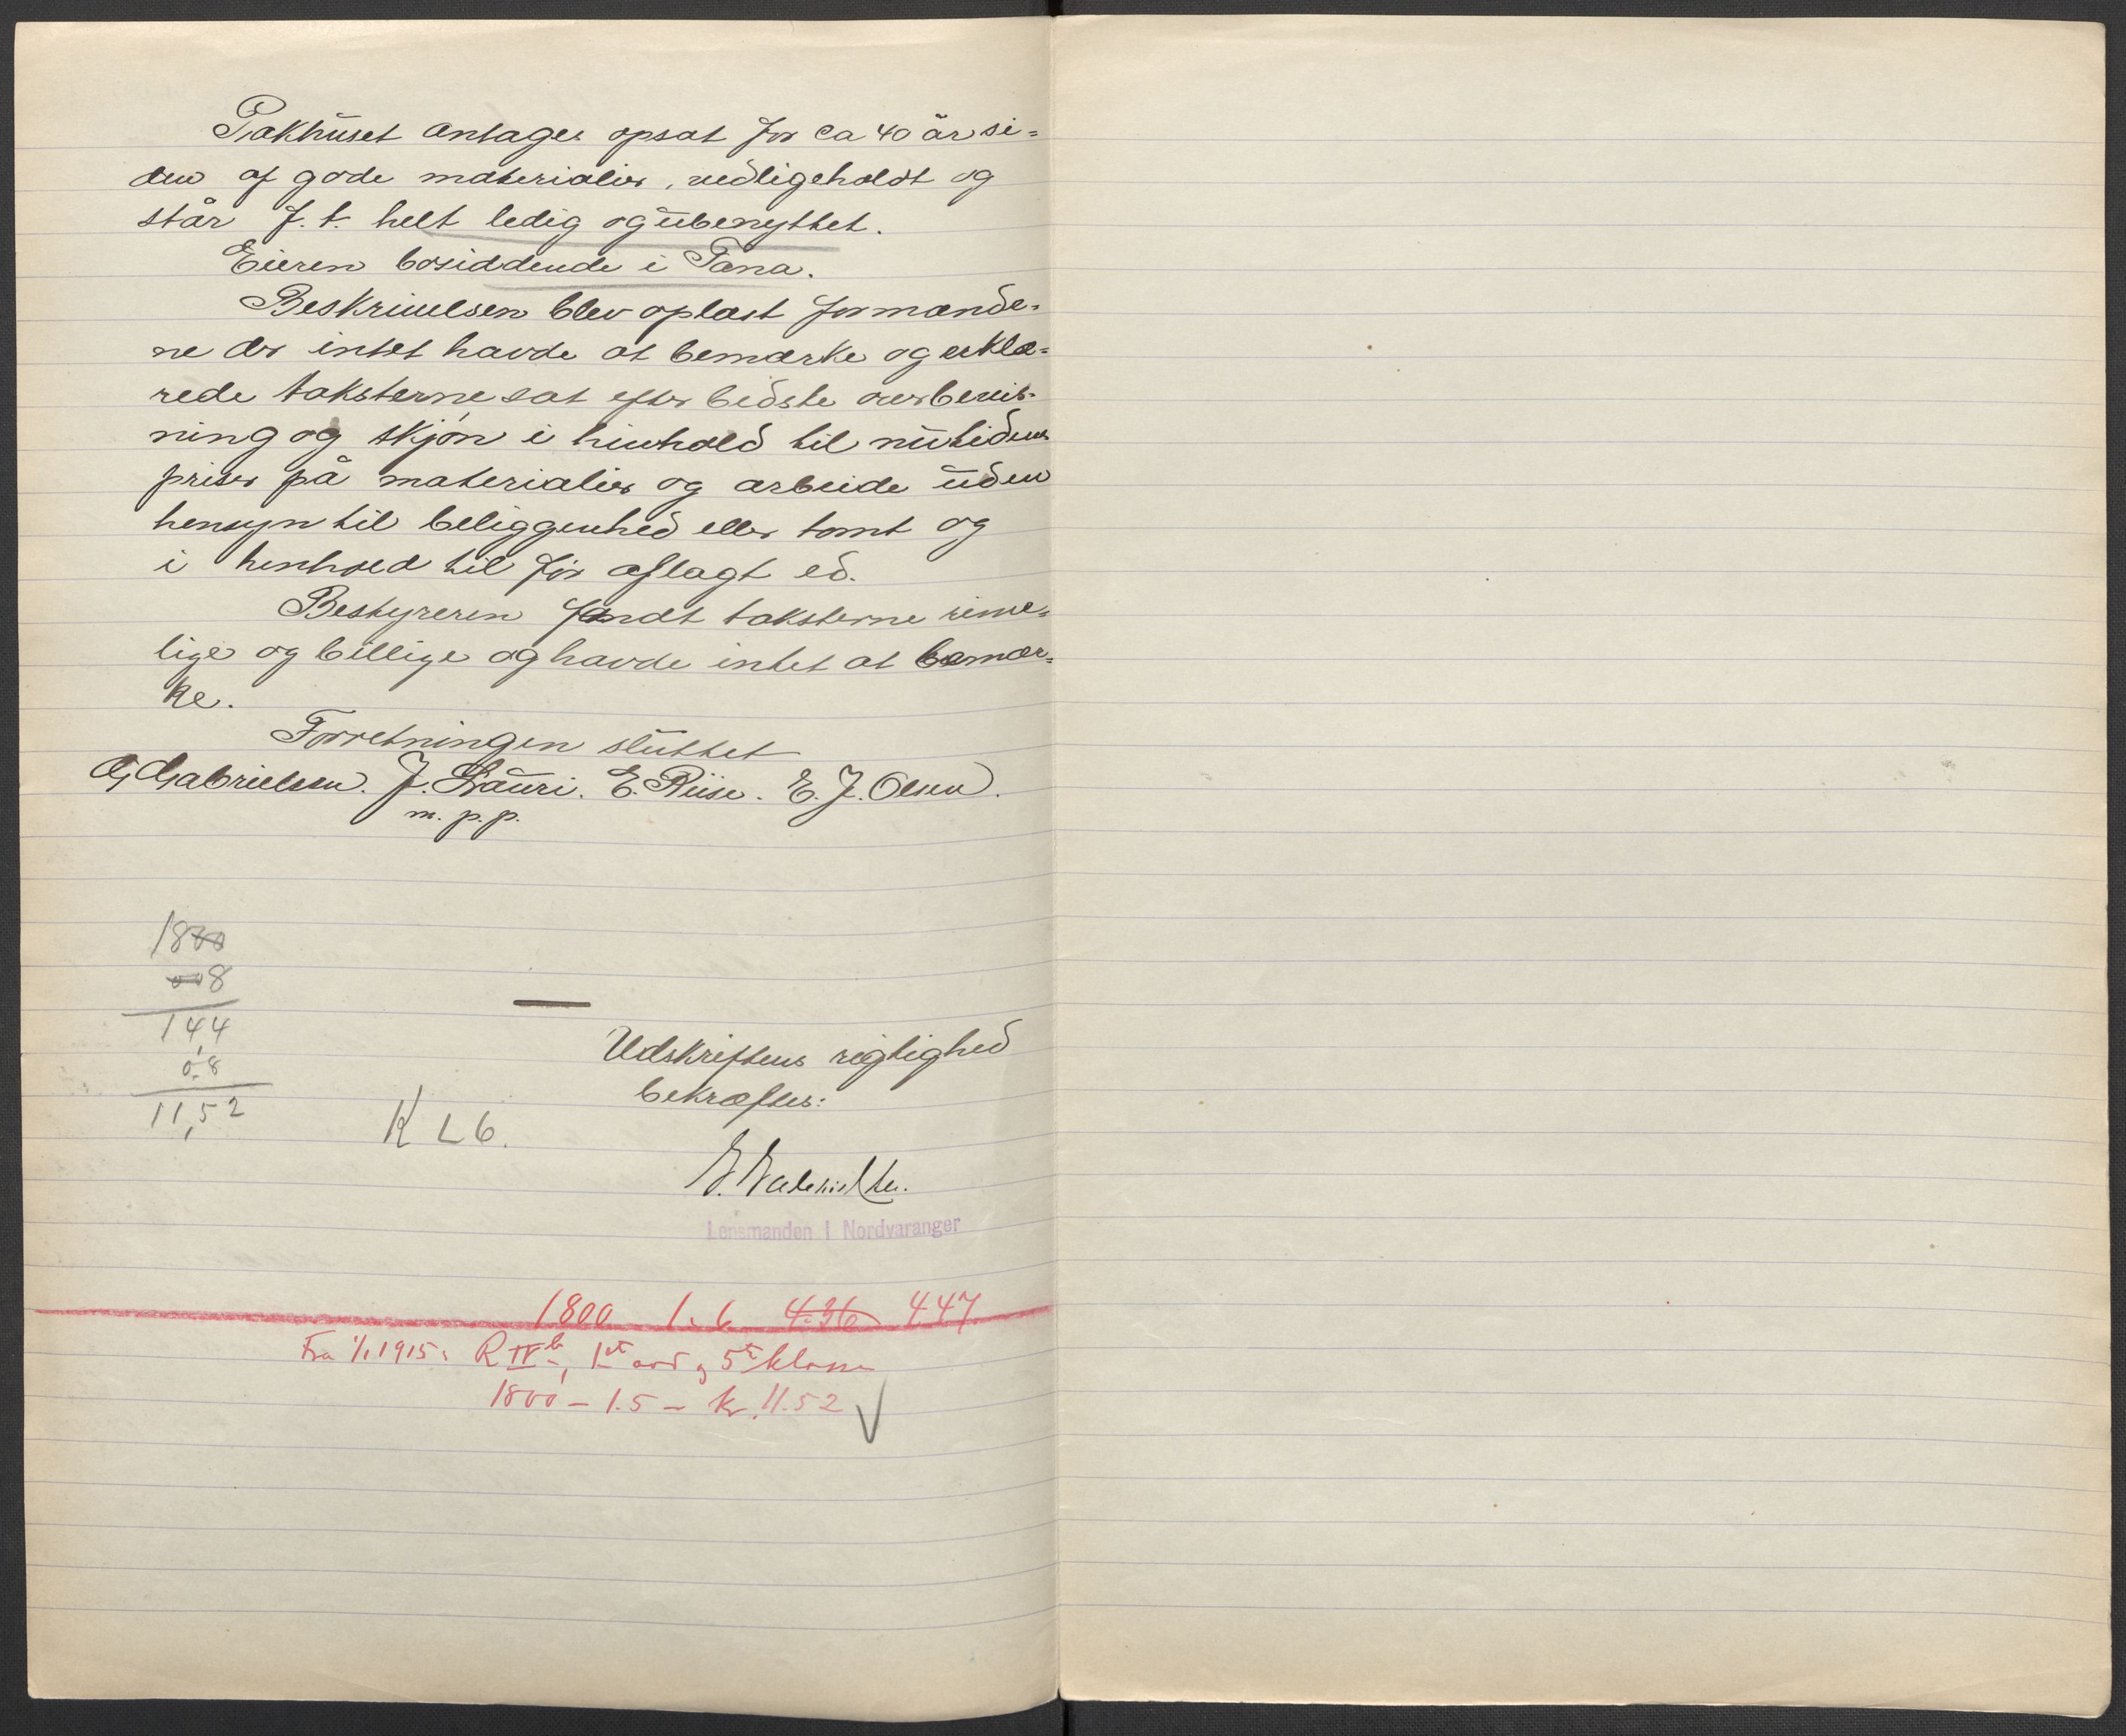 Pakhuset antages opsat for ca 40 år si=
den af gode materialier, vedligeholdt og
står f.t. helt ledig og ubenyttet.
Eieren bosiddende i Tana.
Beskrivelsen blev oplæst for mænde=
ne der intet havde at bemærke og erklæ=
rede taksterne sat efter bedste overbevis-
ning og skjøn i hinhold til nutidens
priser på materialier og arbeide uden
hensyn til beliggenhed eller tomt og
i henhold til før aflagt ed.
Bestyreren fandt taksterne rime=
lige og billige og havde intet at bemær=
ke.
Forretningen sluttet
G. Gabrielsen. J. Lauri. E. Riise. E. J. Olsen.
m. p. p.
1800
008
14,4
0.8
11,52
K L 6.
Udskriftens rigtighed
bekræftes:
G. Gabrielsen.
Lensmanden i Nordvaranger
1800 - 1.6 4.36 4.47
Fra 1/1 1915: R IV b, 1st ord og 5te klasse
1800 - 1.5 - kr. 11.52 √